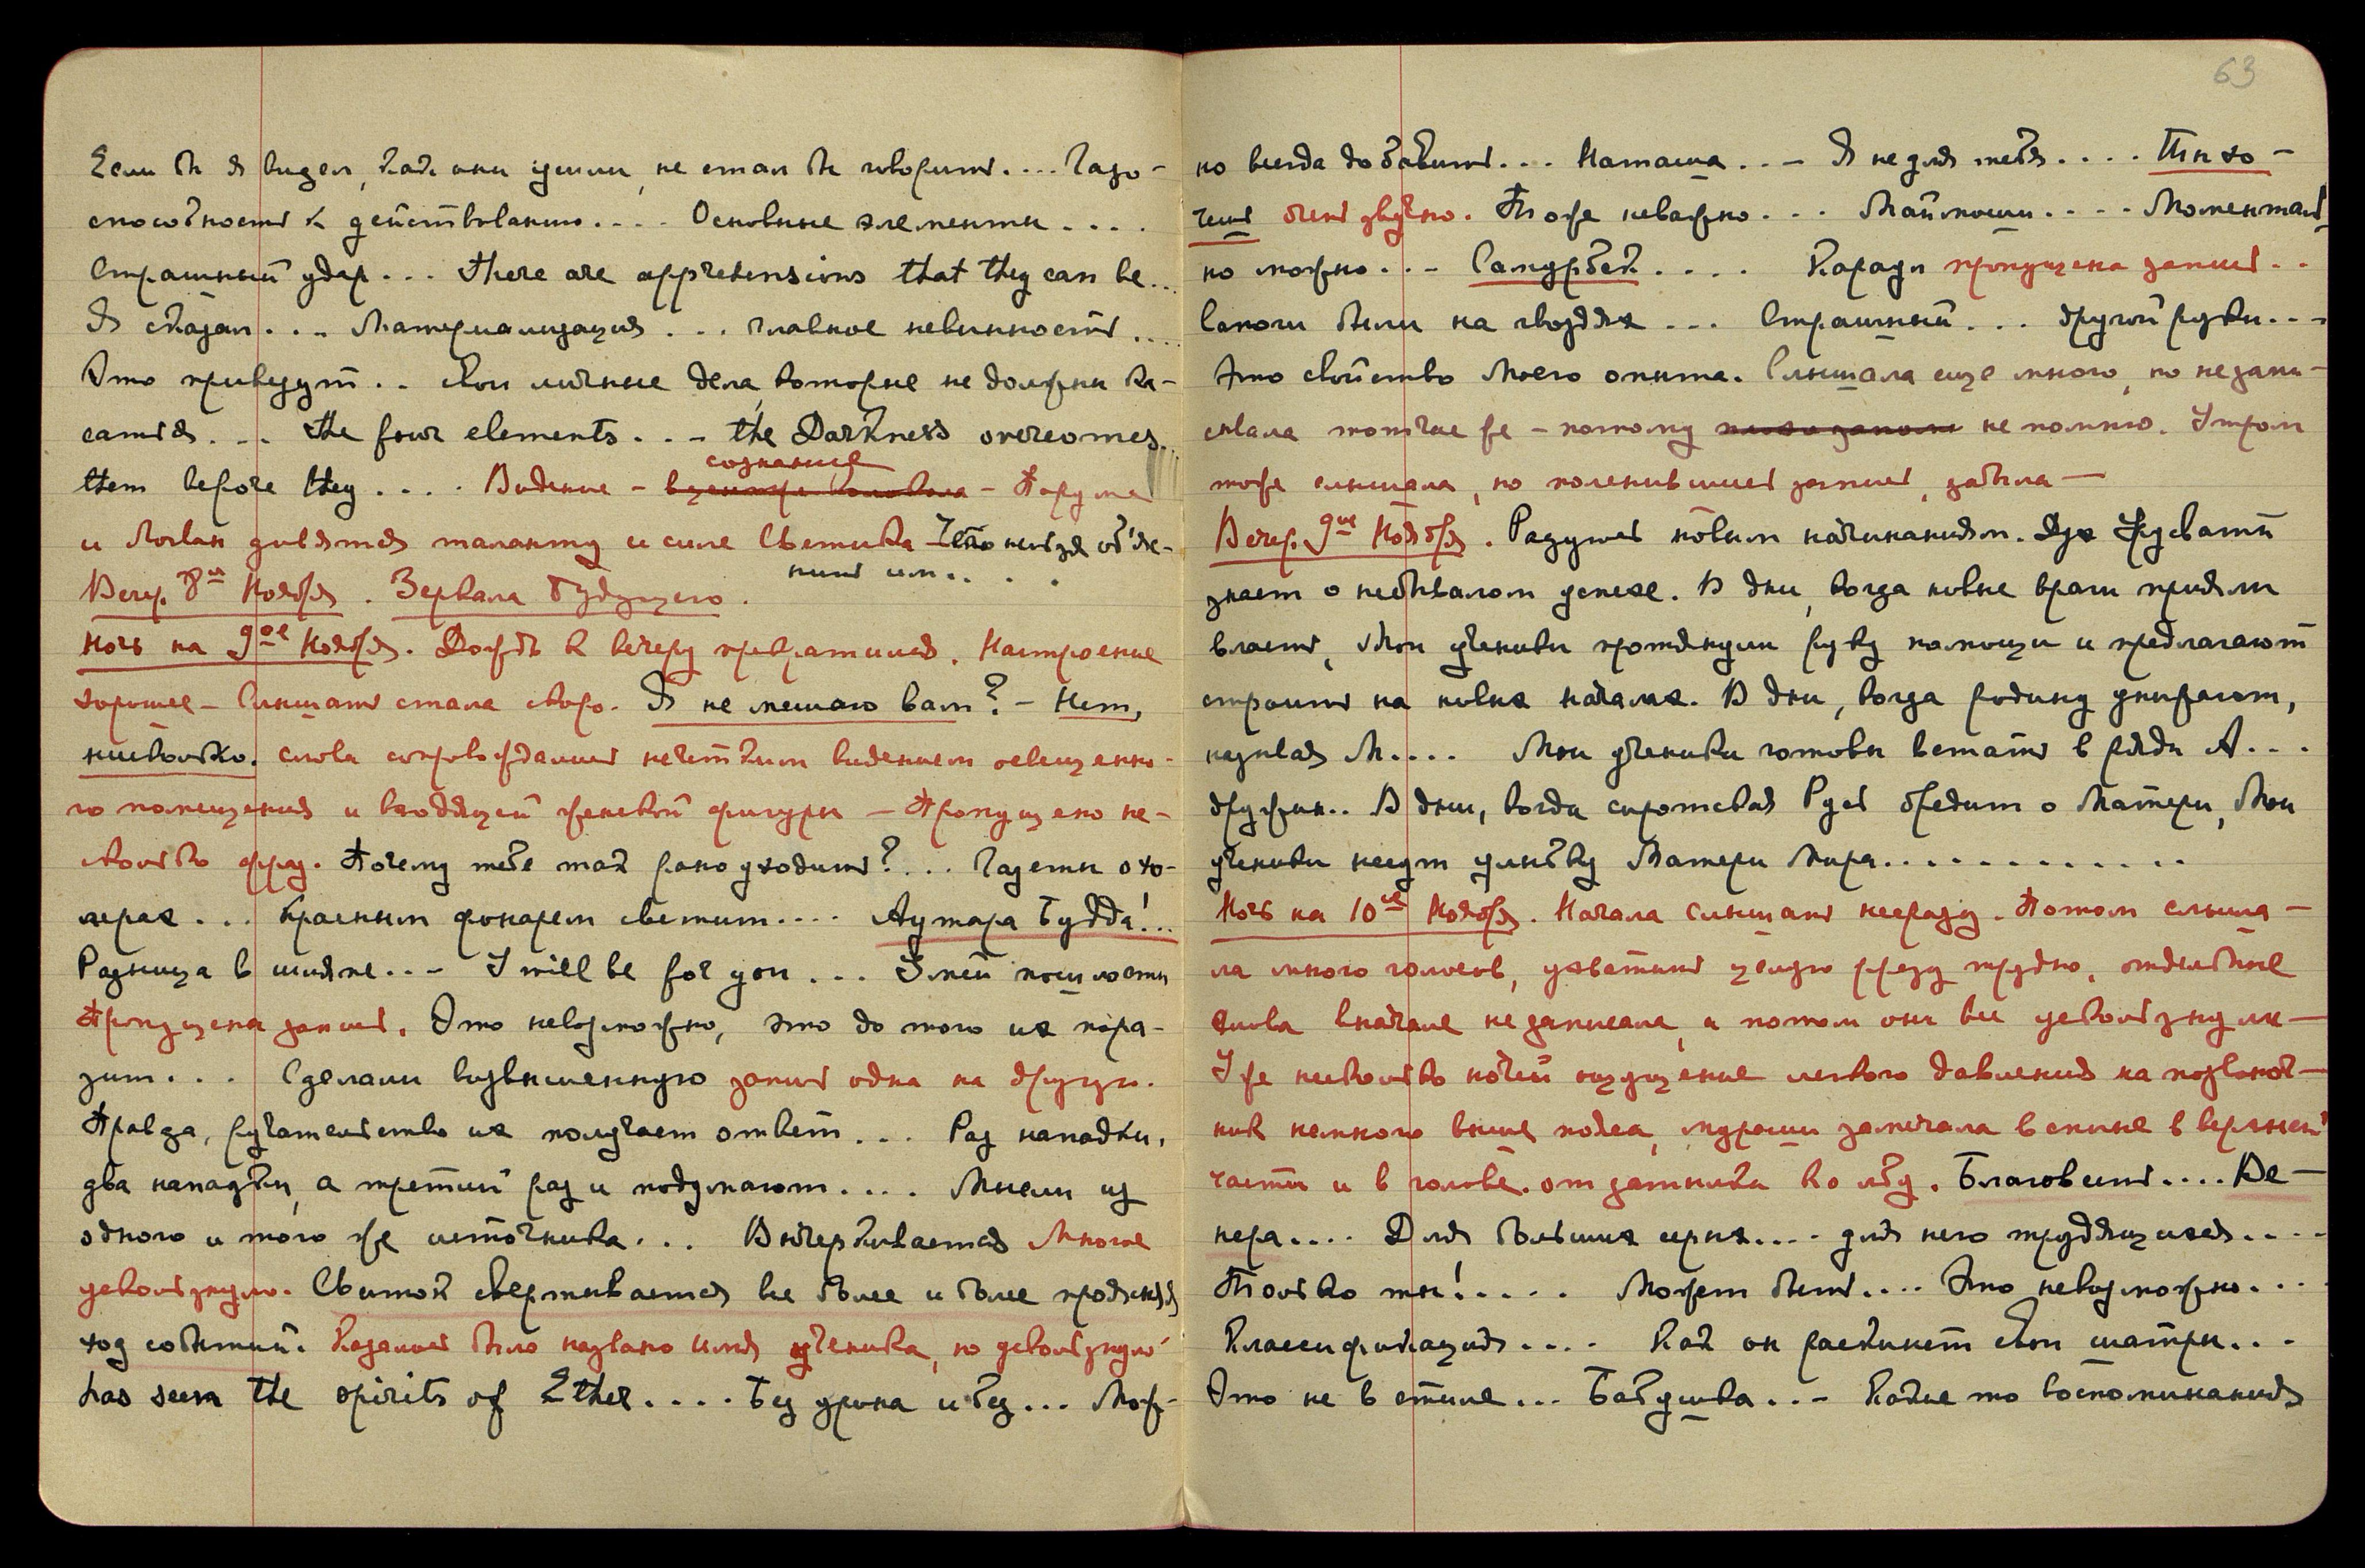 63
Если бы я видел, как они ушли, не стал бы говорить.... Газо-
способность к действованию.... Основные элементы....
Страшный удар... There are apprehensions that they can be...
Я сказал... Материализация... Главное невинность....
Это приведут.. Свои личные дела, которые не должны ка-
саться... The four elements... the Darkness overcomes..
them before they.... Видение - сознание - Порума
и Логван дивятся таланту и силе Светика Чего нельзя объяс-
нить им....
Вечер. 8го Ноября. Зеркала будущего.
Ночь на 9ое Ноября. Дождь к вечеру прекратился. Настроение
хорошее - Слышать стала скоро. Я не мешаю вам? - Нет,
нисколько. слова сопровождались нечетким видением освещенно-
го помещения и входящей женской фигуры - Пропущено не-
сколько фраз. Почему тебе так рано уходить?... Газеты о хо-
лерах... Красным фонарем светит.... Аутара Будда!...
Разница в шляпе... I will be for you... Умей
Пропущена запись. Это невозможно, это до того их пора-
зит... Сделали возвышенную запись одна на другую.
Правда, ручательство их получает ответ... Раз нападки,
два нападки, а третий раз и подумают.... Мысли из
одного и того же источника... Вычеркивается Многое
ускользнуло. Свиток свертывается все более и более
ход событий. Казалось было названо имя ученика, но ускользнуло
has seen the spirits of Ether.... Без урона и без... Мож-
но всегда добавить... Наташа... Я не для тебя.... Тихо-
очень звучно. Тоже неважно... .... Моменталь
но можно... Самурбек.... Коради пропущена запись..
сапоги были на гвоздях... Страшный... другой руки...
Это свойство Моего опыта. Слышала еще много, но не запи-
сывала тотчас же - потому не помню. Утром
тоже слышала, но поленившись запись, забыла -
Вечер. 9ое Ноября. Радуюсь новым начинаниям. Дух Фуевати
знает о небывалом успехе. В дни, когда новые враги приняли
власть, Мои ученики протянули руку помощи и предлагают
строить на новых началах. В дни, когда родину унижают,
называя М.... Мои ученики готовы встать в ряды А...
дружины.. В дни, когда сиротская Русь бредит о Матери, Мои
ученики несут улыбку Матери Мира.............
Ночь на 10ое Ноября. Начала слышать не сразу. Потом слыша-
ла много голосов, ухватить целую фразу трудно, отдельные
слова вначале не записала, а потом они все ускользнули -
Уже несколько ночей ощущение легкого давления на позвоноч-
ник немного выше пояса, мурашки замечала в спине в верхней
части и в голове. от затылка ко лбу. Благовест.... Ве-
нера.... Для больших серых.... для него трудящихся....
Только ты!..... Может быть.... Это невозможно...
Классификация.... Как он раскинет свои шатры...
Это не в стиле... Бабушка... Какие то воспоминания